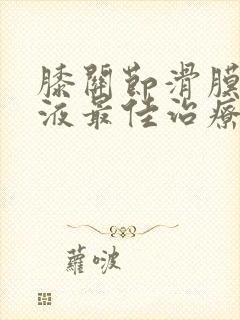 膝關節滑膜
液最佳治療
蘿啵